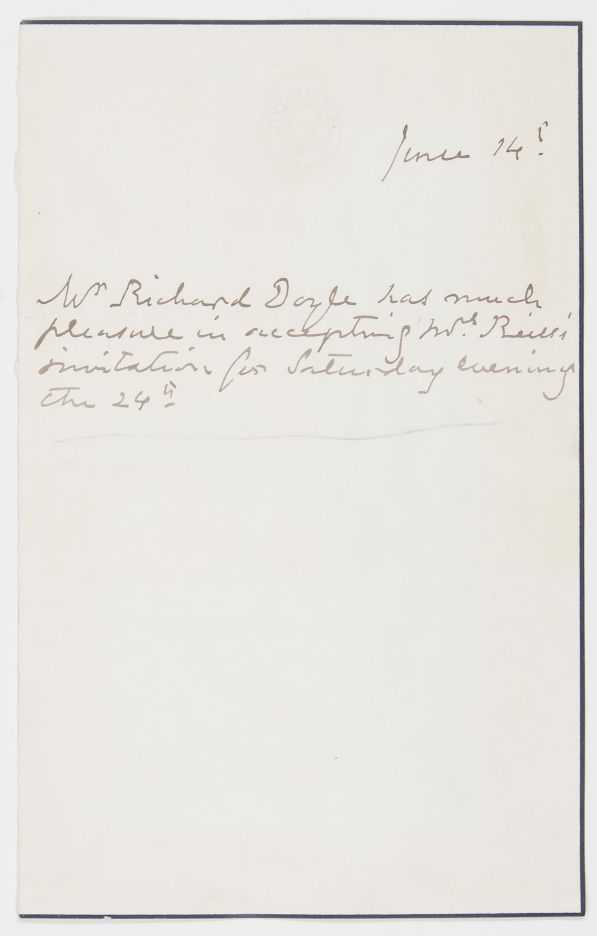 June 14th
Mr Richard Doyle has much
pleasure in accepting Mrs Reiss'
invitation for Saturday evening
the 24th